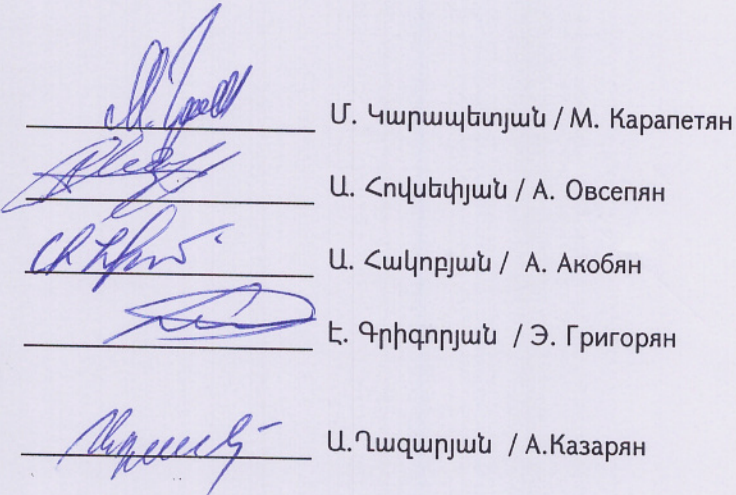 Մ. Կարապետյան / М. Карапетян
Ա. Հովսեփյան / А. Овсепян
Ա. Հակոբյան / А. Акобян
Է. Գրիգորյան / Э. Григорян
Ա.Ղազարյան / А.Казарян